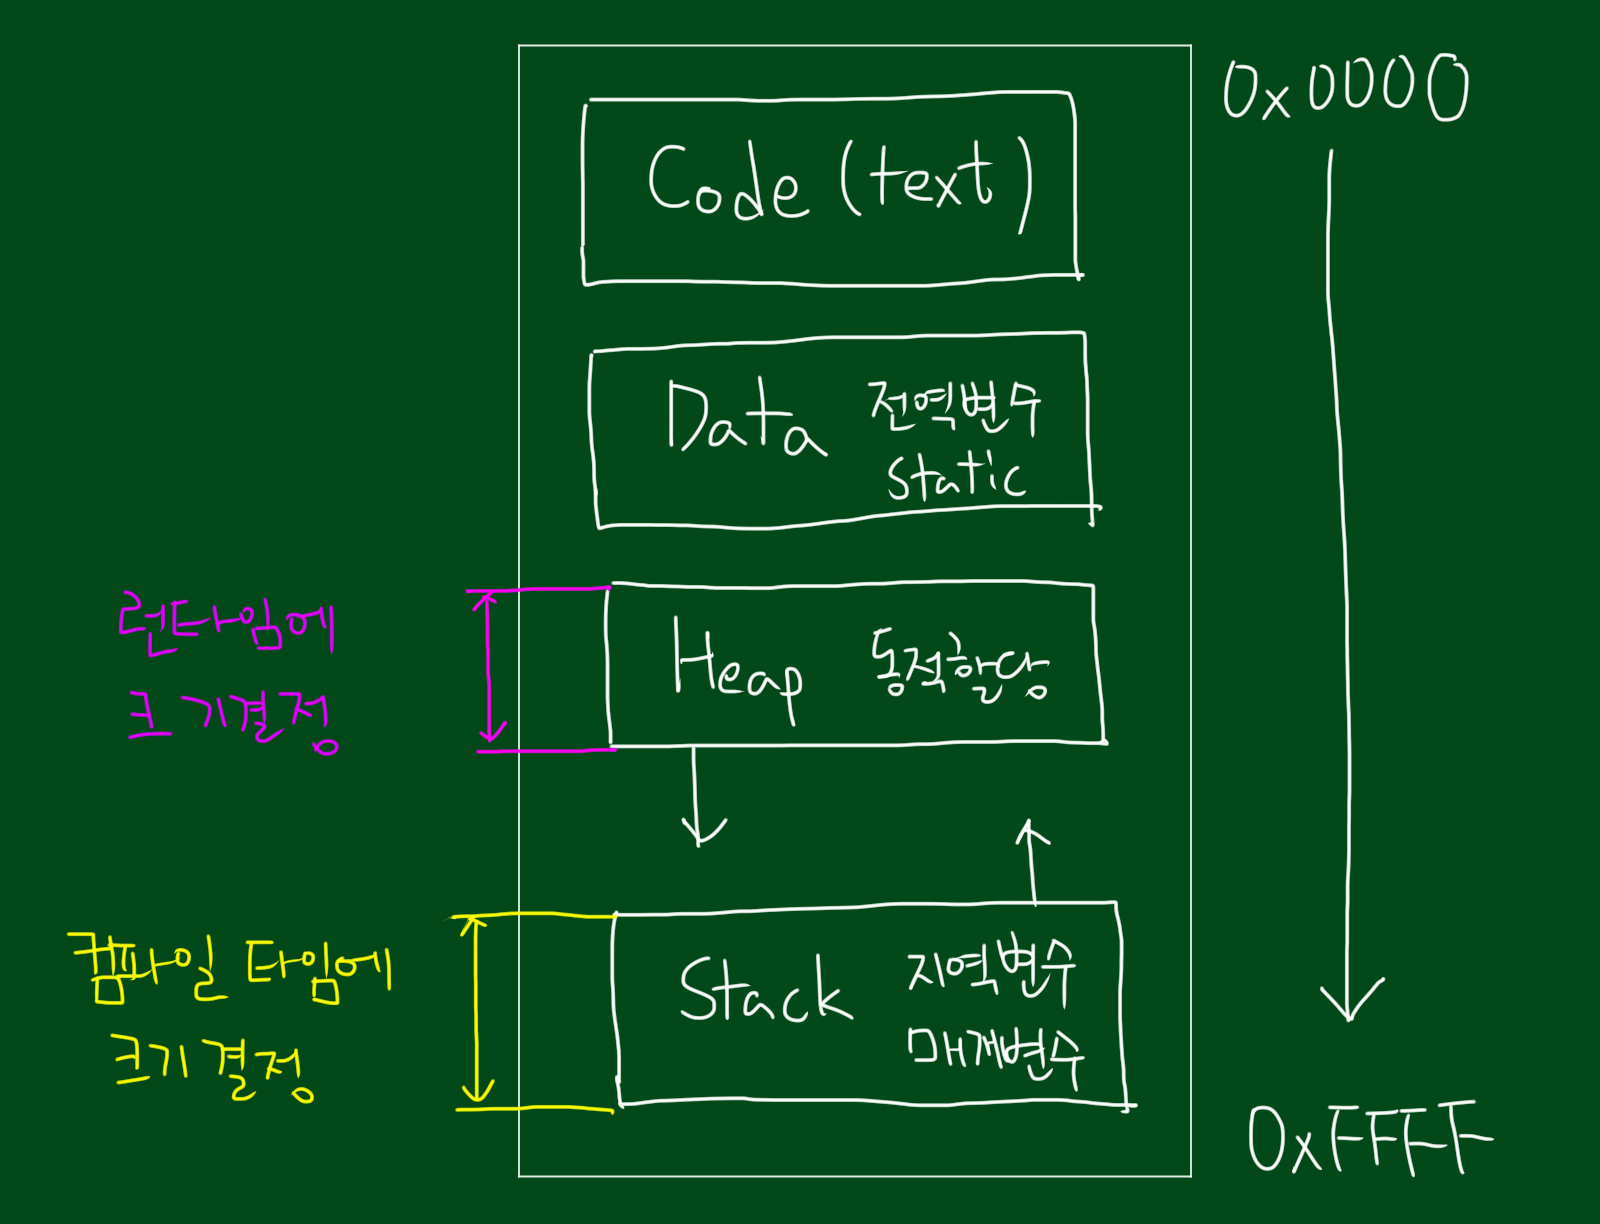 0x0000
Code (text)
Data 전역변수
Static
런타임에
크기결정
Heap 동적할당
컴파일 타임에
크기결정
Stack 지역변수
매개변수
0xFFFF